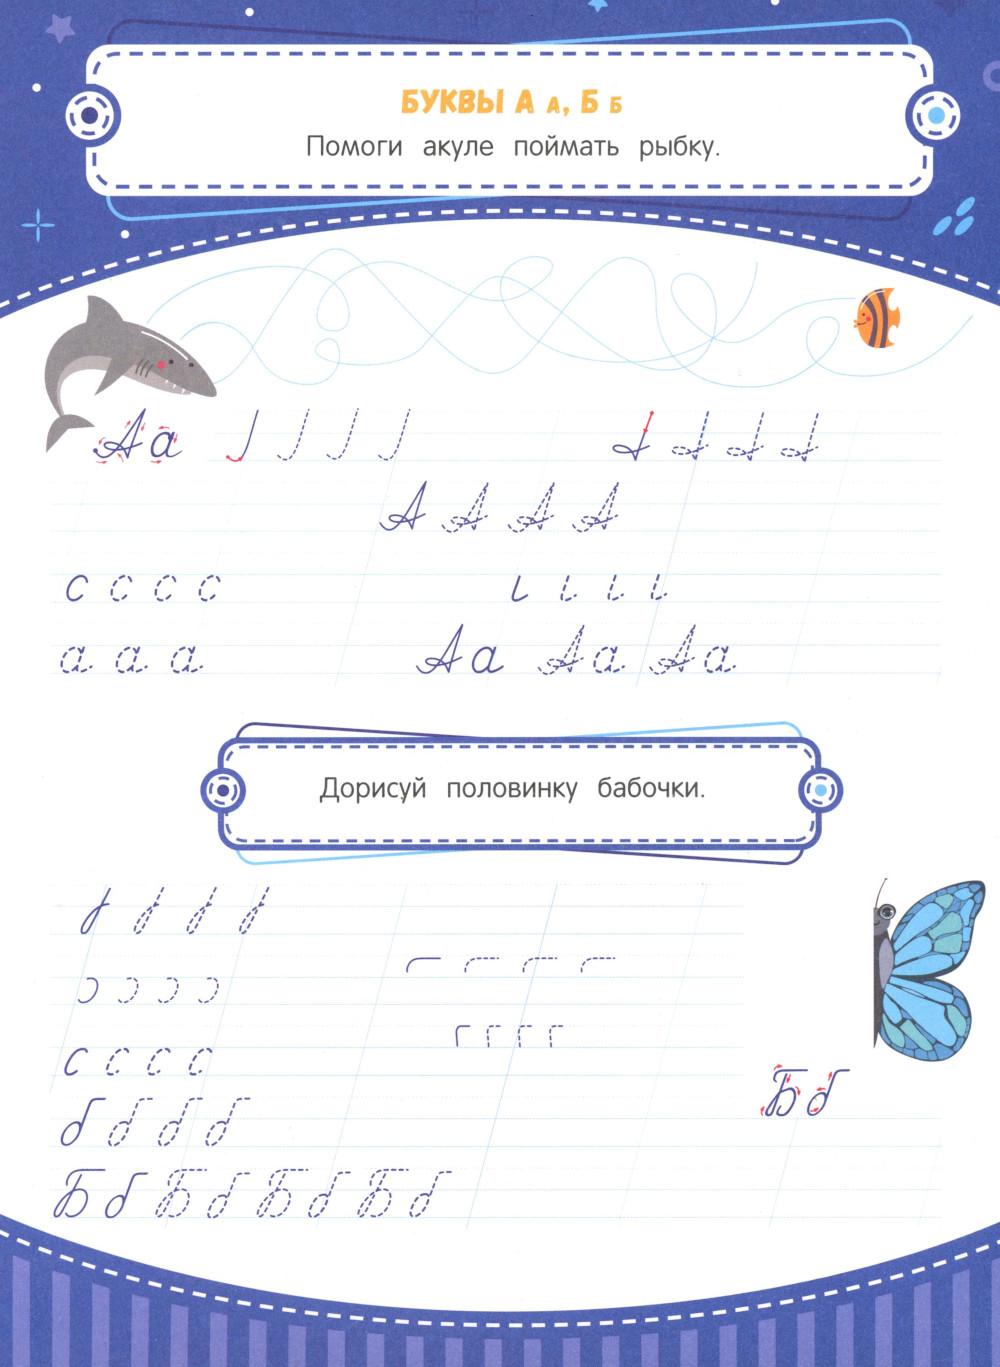 БУКВЫ А а, Б б
Помоги акуле поймать рыбку.
А а
А А А А
с с с с
а а а А а А а А а
Дорисуй половинку бабочки.
с с с с
Б б
б б б б
Б б Б б Б б Б б